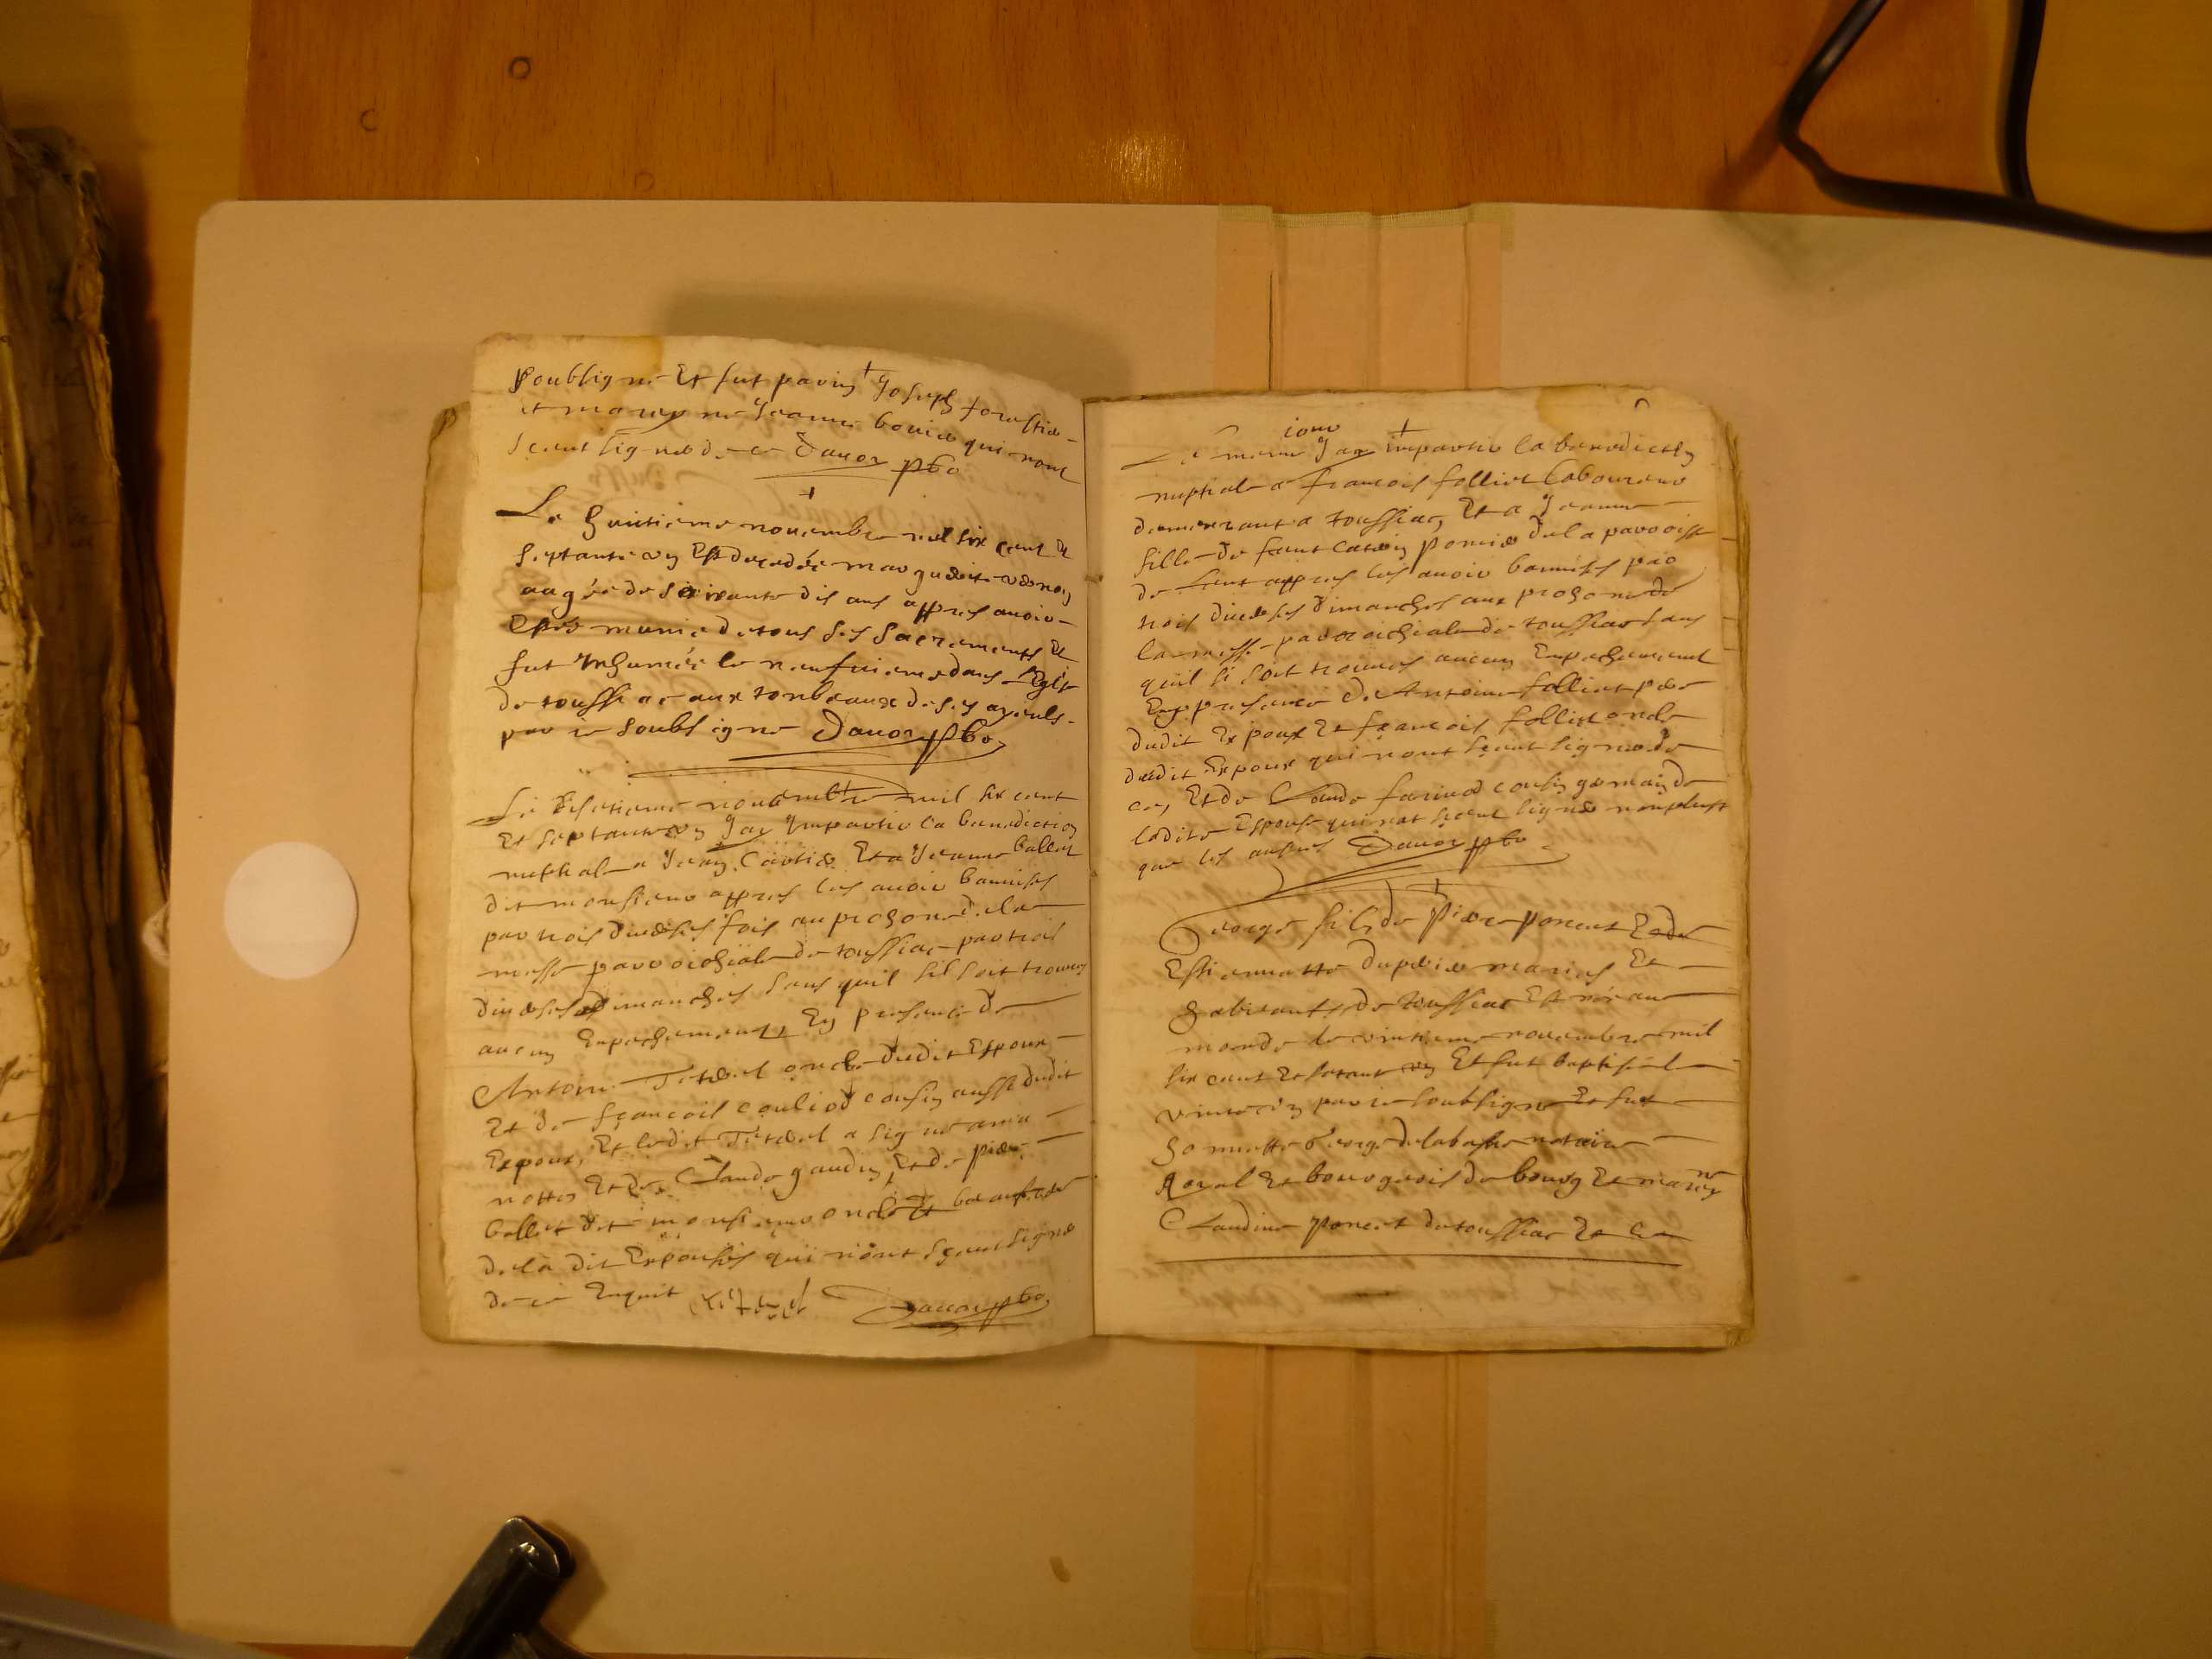 soubsigne Et fut parrin Joseph forestier
et marrey ne Jeanne bouvier qui nont
sceut signer de ce Dauor pbr
Le huictieme nouembre mil six cent Et
septante vng Est decedée marguerite
aagée de soixante dis ans appres auoir
Esté munie de tous ses sacrements Et
fut Inhumée le neufuieme dans Eglise
de toussiac aux tombeaux de ses ayeuls
par ie soubsigne Dauor pbr
Le nouembre mil six cent
Et septante vng Jay Impartir la benediction
nuptiale a Jean Cartier Et a Jeanne ballet
dit monsieur appres les auoir bannises
par trois diuerses fois au prosone de la
messe parrochiale de toussiac par trois
diuerses dimanches sans quil sil soit trouues
aucun Enpechement, En presence de
Antoine oncle dudit Espoux
Et de françois couliod cousin aussi dudit
Expoux, Et ledit a signe a ma
nottes Et de Claude gaudin, Et de pierre
ballet dit monsieur oncle Et beaufrere
de la dit Expouses qui nont sceut signe
de ce Enquit Dauor pbr
iour
Le meme Jay impartir la benediction
nuptiale a francois folliet laboureur
demeurant a toussiac, Et a Jeanne
fille de feut Catrin poncier de la parroisse
de appres les auoir bannises par
trois diuerses dimanches aux prosone de
la messe parrochiale de toussiac sans
quil si soit trouues aucun Empechement
En presence de Antoine folliet pere
dudit Expoux Et francois folliet oncle
dudit Expoux qui nont sceut signe de
ce, Et de Claude cousin germain de
ladite Espouse qui nat sceut signer nonplust
que les autres Dauor pbr
George fils de pierre poncet Et de
Estiennette dupuis maries Et
habitants de toussiac Est née au
monde le vintieme nouembre mil
six cent Et setant vng Et fut baptisé le
vint vng par ie soubsigne Et fut
honneste George delabasse notaire
Royal Et bourgeois de bourg Et marrey ne
Claudine poncet de toussiac Et